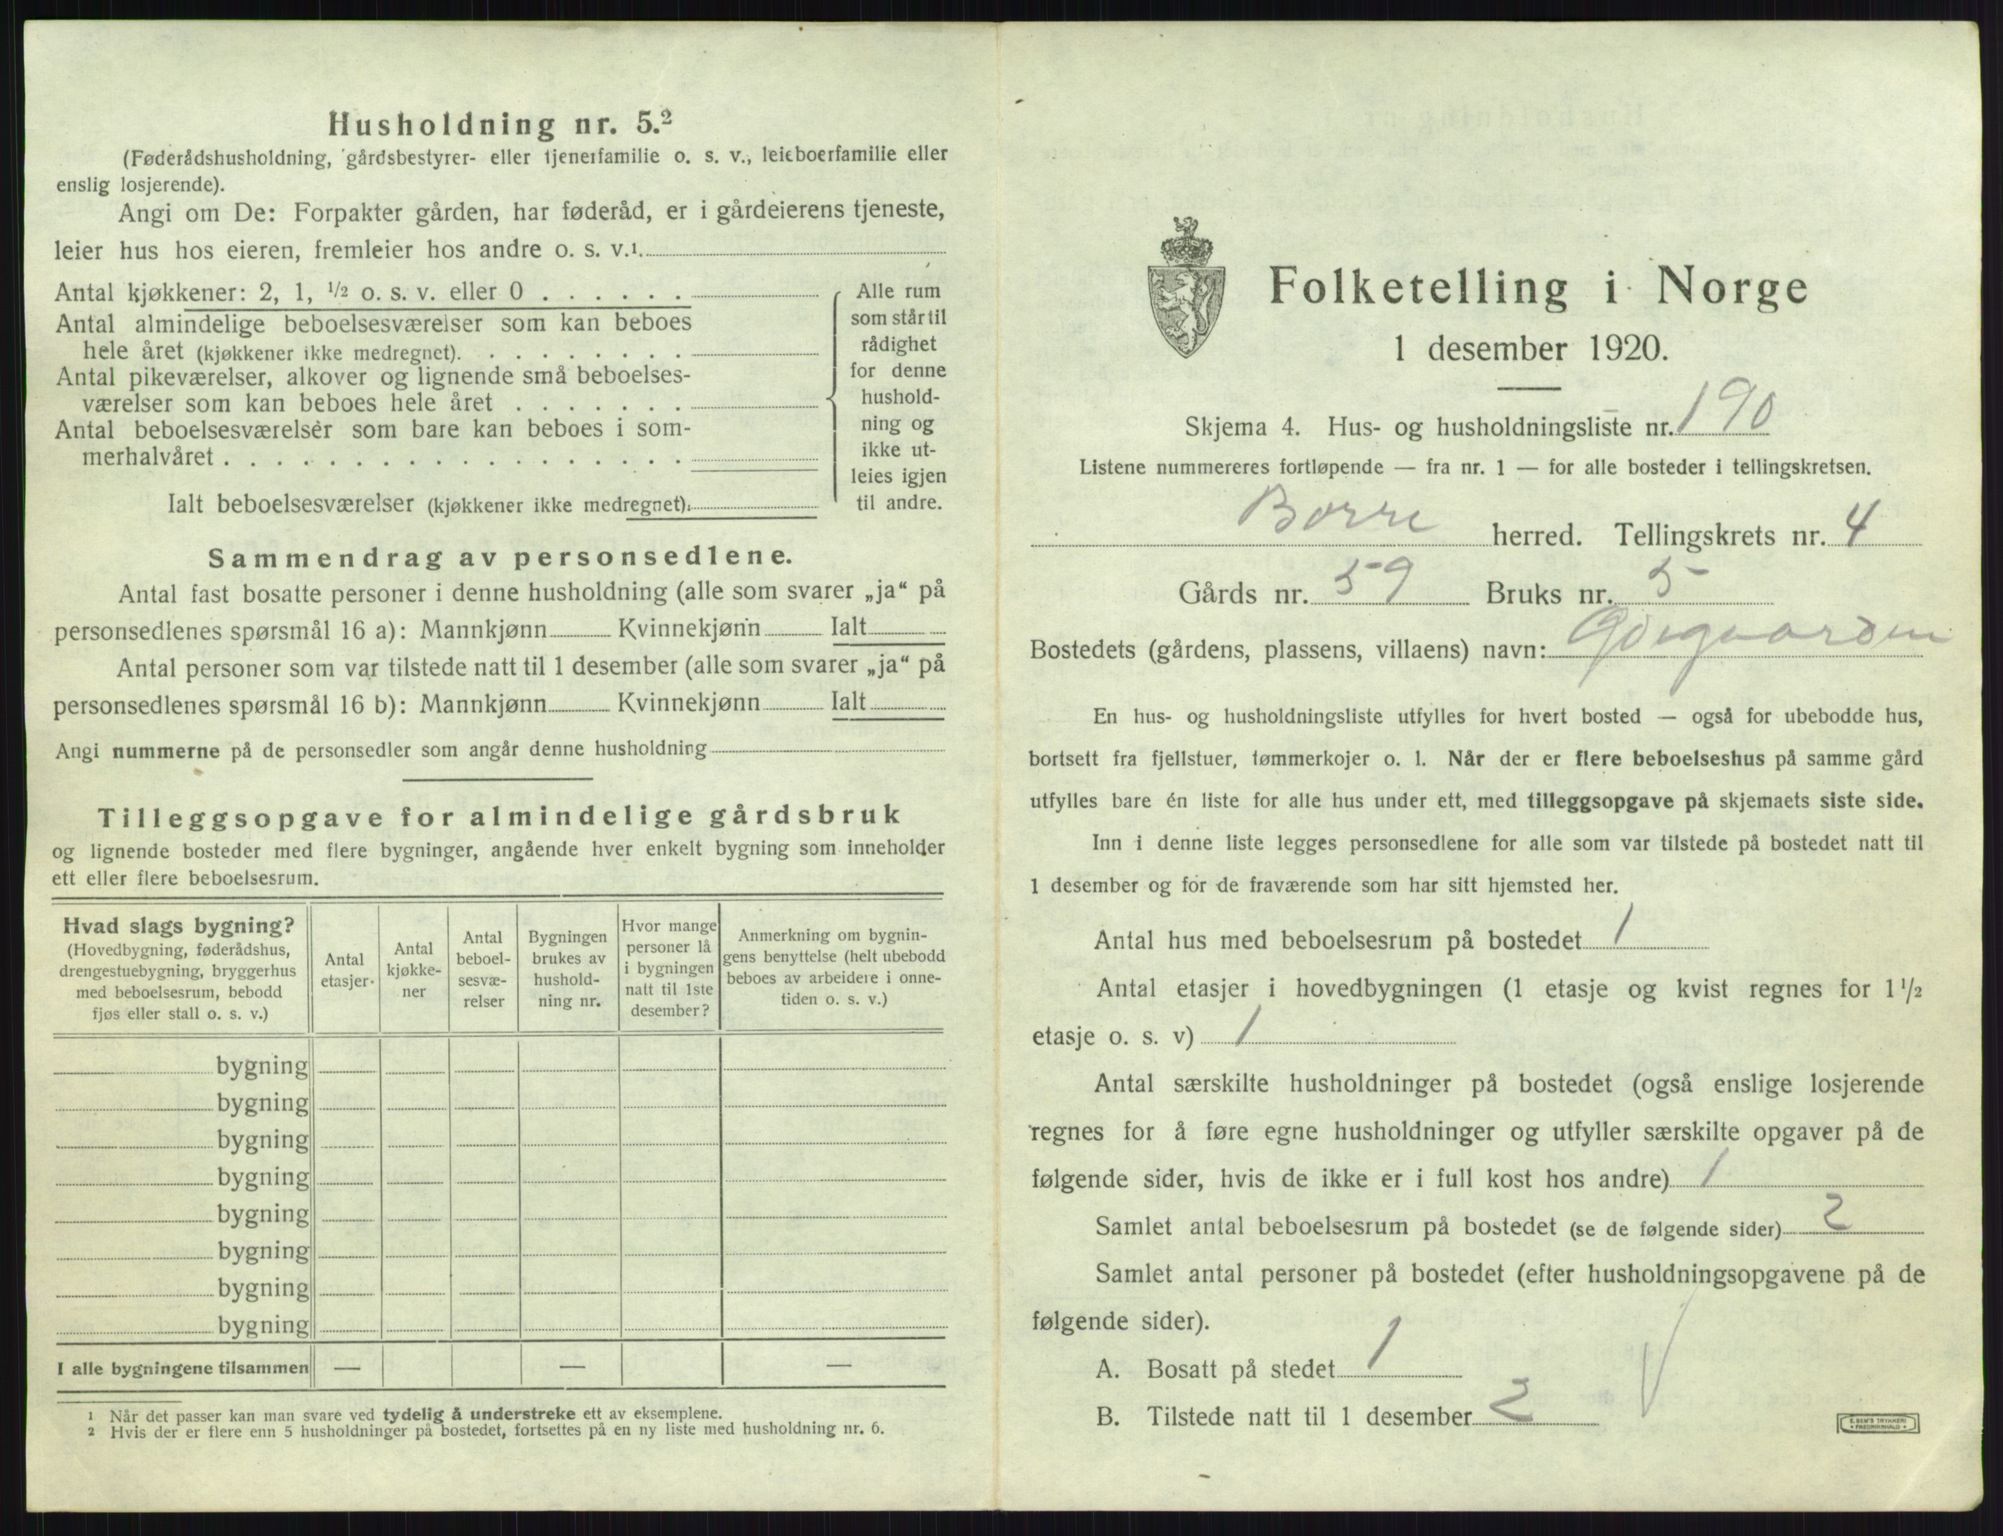 Husholdning nr. 5.²
(Føderådshusholdning, gårdsbestyrer- eller tjenerfamilie o. s. v., leieboerfamilie eller
enslig losjerende).
Angi om De: Forpakter gården, har føderåd, er i gårdeierens tjeneste,
leier hus hos eieren, fremleier hos andre o. s. v.¹.
Antal kjøkkener: 2, 1, ½ o. s. v. eller 0 . . . . . .
Antal almindelige beboelsesværelser som kan beboes
hele året (kjøkkener ikke medregnet). . . . . . . . .
Antal pikeværelser, alkover og lignende små beboelses-
værelser som kan beboes hele året . . . . . . .
Antal beboelsesværelser som bare kan beboes i som-
merhalvåret . . . . . . . . . . . . . . . . . .
Ialt beboelsesværelser (kjøkkener ikke medregnet):
Alle rum
som står til
rådighet
for denne
hushold-
ning og
ikke ut-
leies igjen
til andre.
Sammendrag av personsedlene.
Antal fast bosatte personer i denne husholdning (alle som svarer „ja“ på
personsedlenes spørsmål 16 a): Mannkjønn Kvinnekjønn Ialt
Antal personer som var tilstede natt til 1 desember (alle som svarer „ja“ på
personsedlenes spørsmål 16 b): Mannkjønn Kvinnekjønn Ialt
Angi nummerne på de personsedler som angår denne husholdning
Tilleggsopgave for almindelige gårdsbruk
og lignende bosteder med flere bygninger, angående hver enkelt bygning som inneholder
ett eller flere beboelsesrum.
Hvad slags bygning?
(Hovedbygning, føderådshus,
drengestuebygning, bryggerhus
med beboelsesrum, bebodd
fjøs eller stall o. s. v.)
Antal
etasjer
Antal
kjøkke-
ner
Antal
beboel-
sesvæ-
relser
Bygningen
brukes av
hushold-
ning nr.
Hvor mange
personer lå
i bygningen
natt til 1ste
desember?
Anmerkning om bygnin-
gens benyttelse (helt ubebodd
beboes av arbeidere i onne-
tiden o. s. v.)
bygning
bygning
bygning
bygning
bygning
bygning
bygning
bygning
I alle bygningene tilsammen — — —
1 Når det passer kan man svare ved tydelig å understreke ett av eksemplene.
2 Hvis der er flere enn 5 husholdninger på bostedet, fortsettes på en ny liste med husholdning nr. 6.
Folketelling i Norge
1 desember 1920.
Skjema 4. Hus- og husholdningsliste nr. 190
Listene nummereres fortløpende — fra nr. 1 — for alle bosteder i tellingskretsen.
Borre herred. Tellingskrets nr. 4
Gårds nr. 59 Bruks nr. 5
Bostedets (gårdens, plassens, villaens) navn:
En hus- og husholdningsliste utfylles for hvert bosted — også for ubebodde hus,
bortsett fra fjellstuer, tømmerkojer o. l. Når der er flere beboelseshus på samme gård
utfylles bare én liste for alle hus under ett, med tilleggsopgave på skjemaets siste side.
Inn i denne liste legges personsedlene for alle som var tilstede på bostedet natt til
1 desember og for de fraværende som har sitt hjemsted her.
Antal hus med beboelsesrum på bostedet 1
Antal etasjer i hovedbygningen (1 etasje og kvist regnes for 1 ½
etasje o. s. v) 1
Antal særskilte husholdninger på bostedet (også enslige losjerende
regnes for å føre egne husholdninger og utfyller særskilte opgaver på de
følgende sider, hvis de ikke er i full kost hos andre) 1
Samlet antal beboelsesrum på bostedet (se de følgende sider) 2
Samlet antal personer på bostedet (efter husholdningsopgavene på de
følgende sider).
A. Bosatt på stedet 1
B. Tilstede natt til 1 desember 2